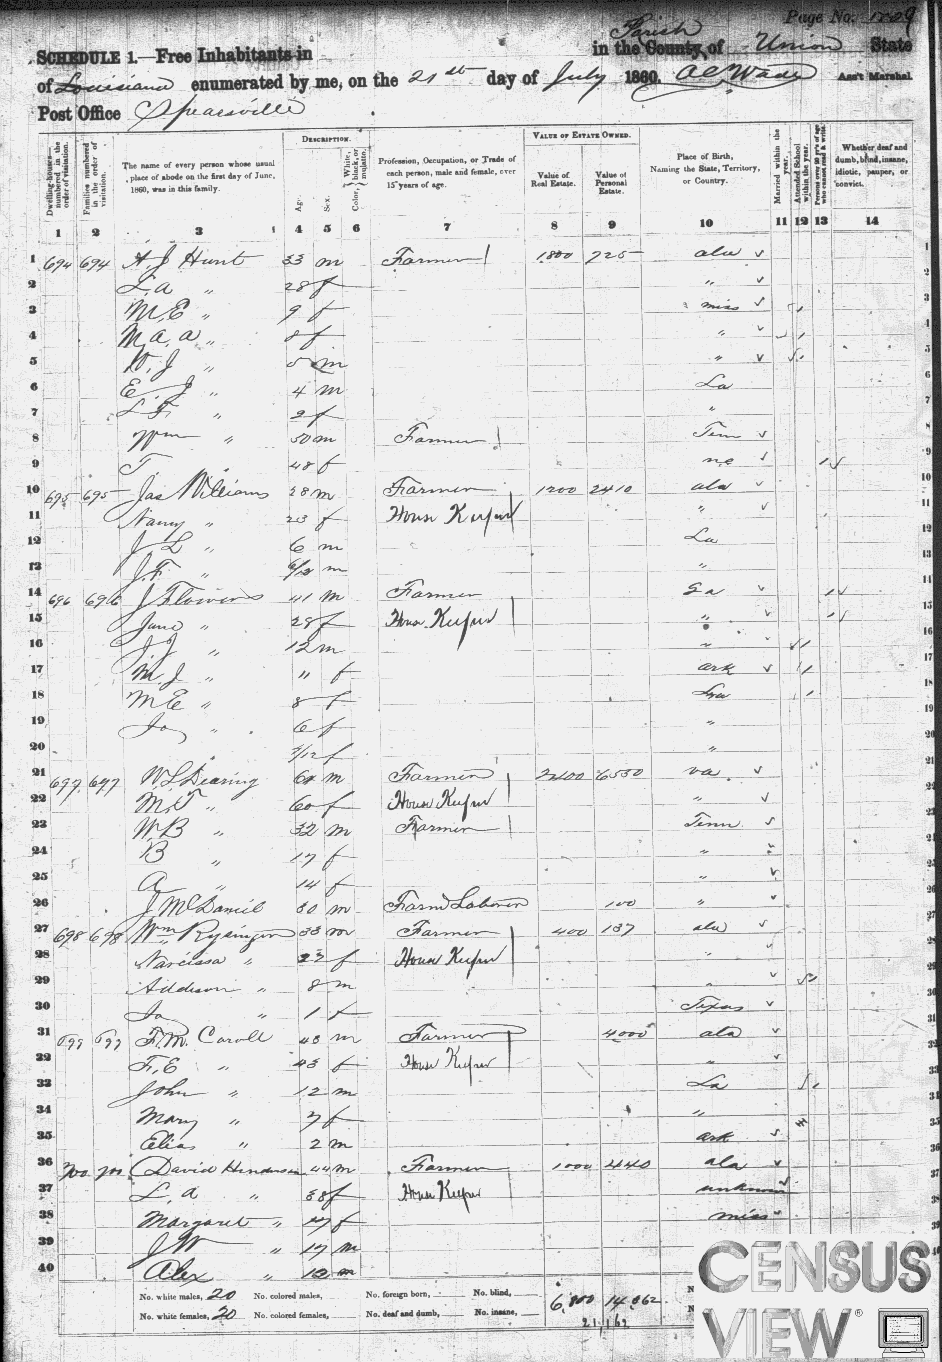 Page No. 1209
SCHEDULE 1.—Free Inhabitants in in the County Parish of Union State
of Louisiana enumerated by me, on the 21st day of July 1860. Ass't Marshal.
Post Office Spearsville
Dwelling-houses—numbered in the order of visitation. Families numbered in the order of visitation. The name of every person whose usual place of abode on the first day of June, 1860, was in this family. DESCRIPTION. Age. Sex. Color, White, black, or mulatto. Profession, Occupation, or Trade of each person, male and female, over 15 years of age. VALUE OF ESTATE OWNED. Value of Real Estate. Value of Personal Estate. Place of Birth, Naming the State, Territory, or Country. Married within the year. Attended School within the year. Persons over 20 y'rs of age who cannot read & write. Whether deaf and dumb, blind, insane, idiotic, pauper, or convict.
1 2 3 4 5 6 7 8 9 10 11 12 13 14
1 694 694 A. J. Hunt 33 m Farmer 1800 725 ala 1
2 L. a " 28 f " 2
3 M. E " 9 f miss 3
4 M. a. a " 8 f " 4
5 W. J " 5 m " 5
6 E. J " 4 m La 6
7 L. F. " 2 f " 7
8 Wm " 50 m Farmer Tenn 8
9 T. " 48 f n c 9
10 695 695 Jas Williams 28 m Farmer 1200 2410 ala 10
11 Nancy " 23 f House Keeper " 11
12 J L " 6 m La 12
13 J. F. " 6/12 m " 13
14 696 696 J Flowers 41 m Farmer Ga 14
15 Jane " 28 f House Keeper " 15
16 J. J " 12 m " 16
17 M. J " 11 f ark 17
18 M E " 8 f La 18
19 " 6 f " 19
20 " /12 f " 20
21 697 697 W. L Dearing 61 m Farmer 2200 6550 va 21
22 M. T " 60 f House Keeper " 22
23 W. B " 32 m Farmer Tenn 23
24 B " 17 f " 24
25 a " 14 f " 25
26 J. McDaniel 30 m Farm Laborer 100 " 26
27 698 698 Wm 33 m Farmer 400 137 ala 27
28 Narcissa " 23 f House Keeper " 28
29 Addison " 8 m " 29
30 " 1 f Texas 30
31 699 699 F. M. Caroll 43 m Farmer 4000 ala 31
32 F. E " 43 f House Keeper " 32
33 John " 12 m La 33
34 Mary " 7 f " 34
35 Elias " 2 m ark 35
36 700 700 David Henderson 44 m Farmer 1000 440 ala 36
37 L. a " 38 f House Keeper unknown 37
38 Margaret " f miss 38
39 J W " 17 m 39
40 Alex " 12 m 40
No. white males, 20 No. colored males, No. foreign born, No. blind, 6,800
No. white females, 20 No. colored females, No. deaf and dumb, No. insane,
CENSUS
VIEW®